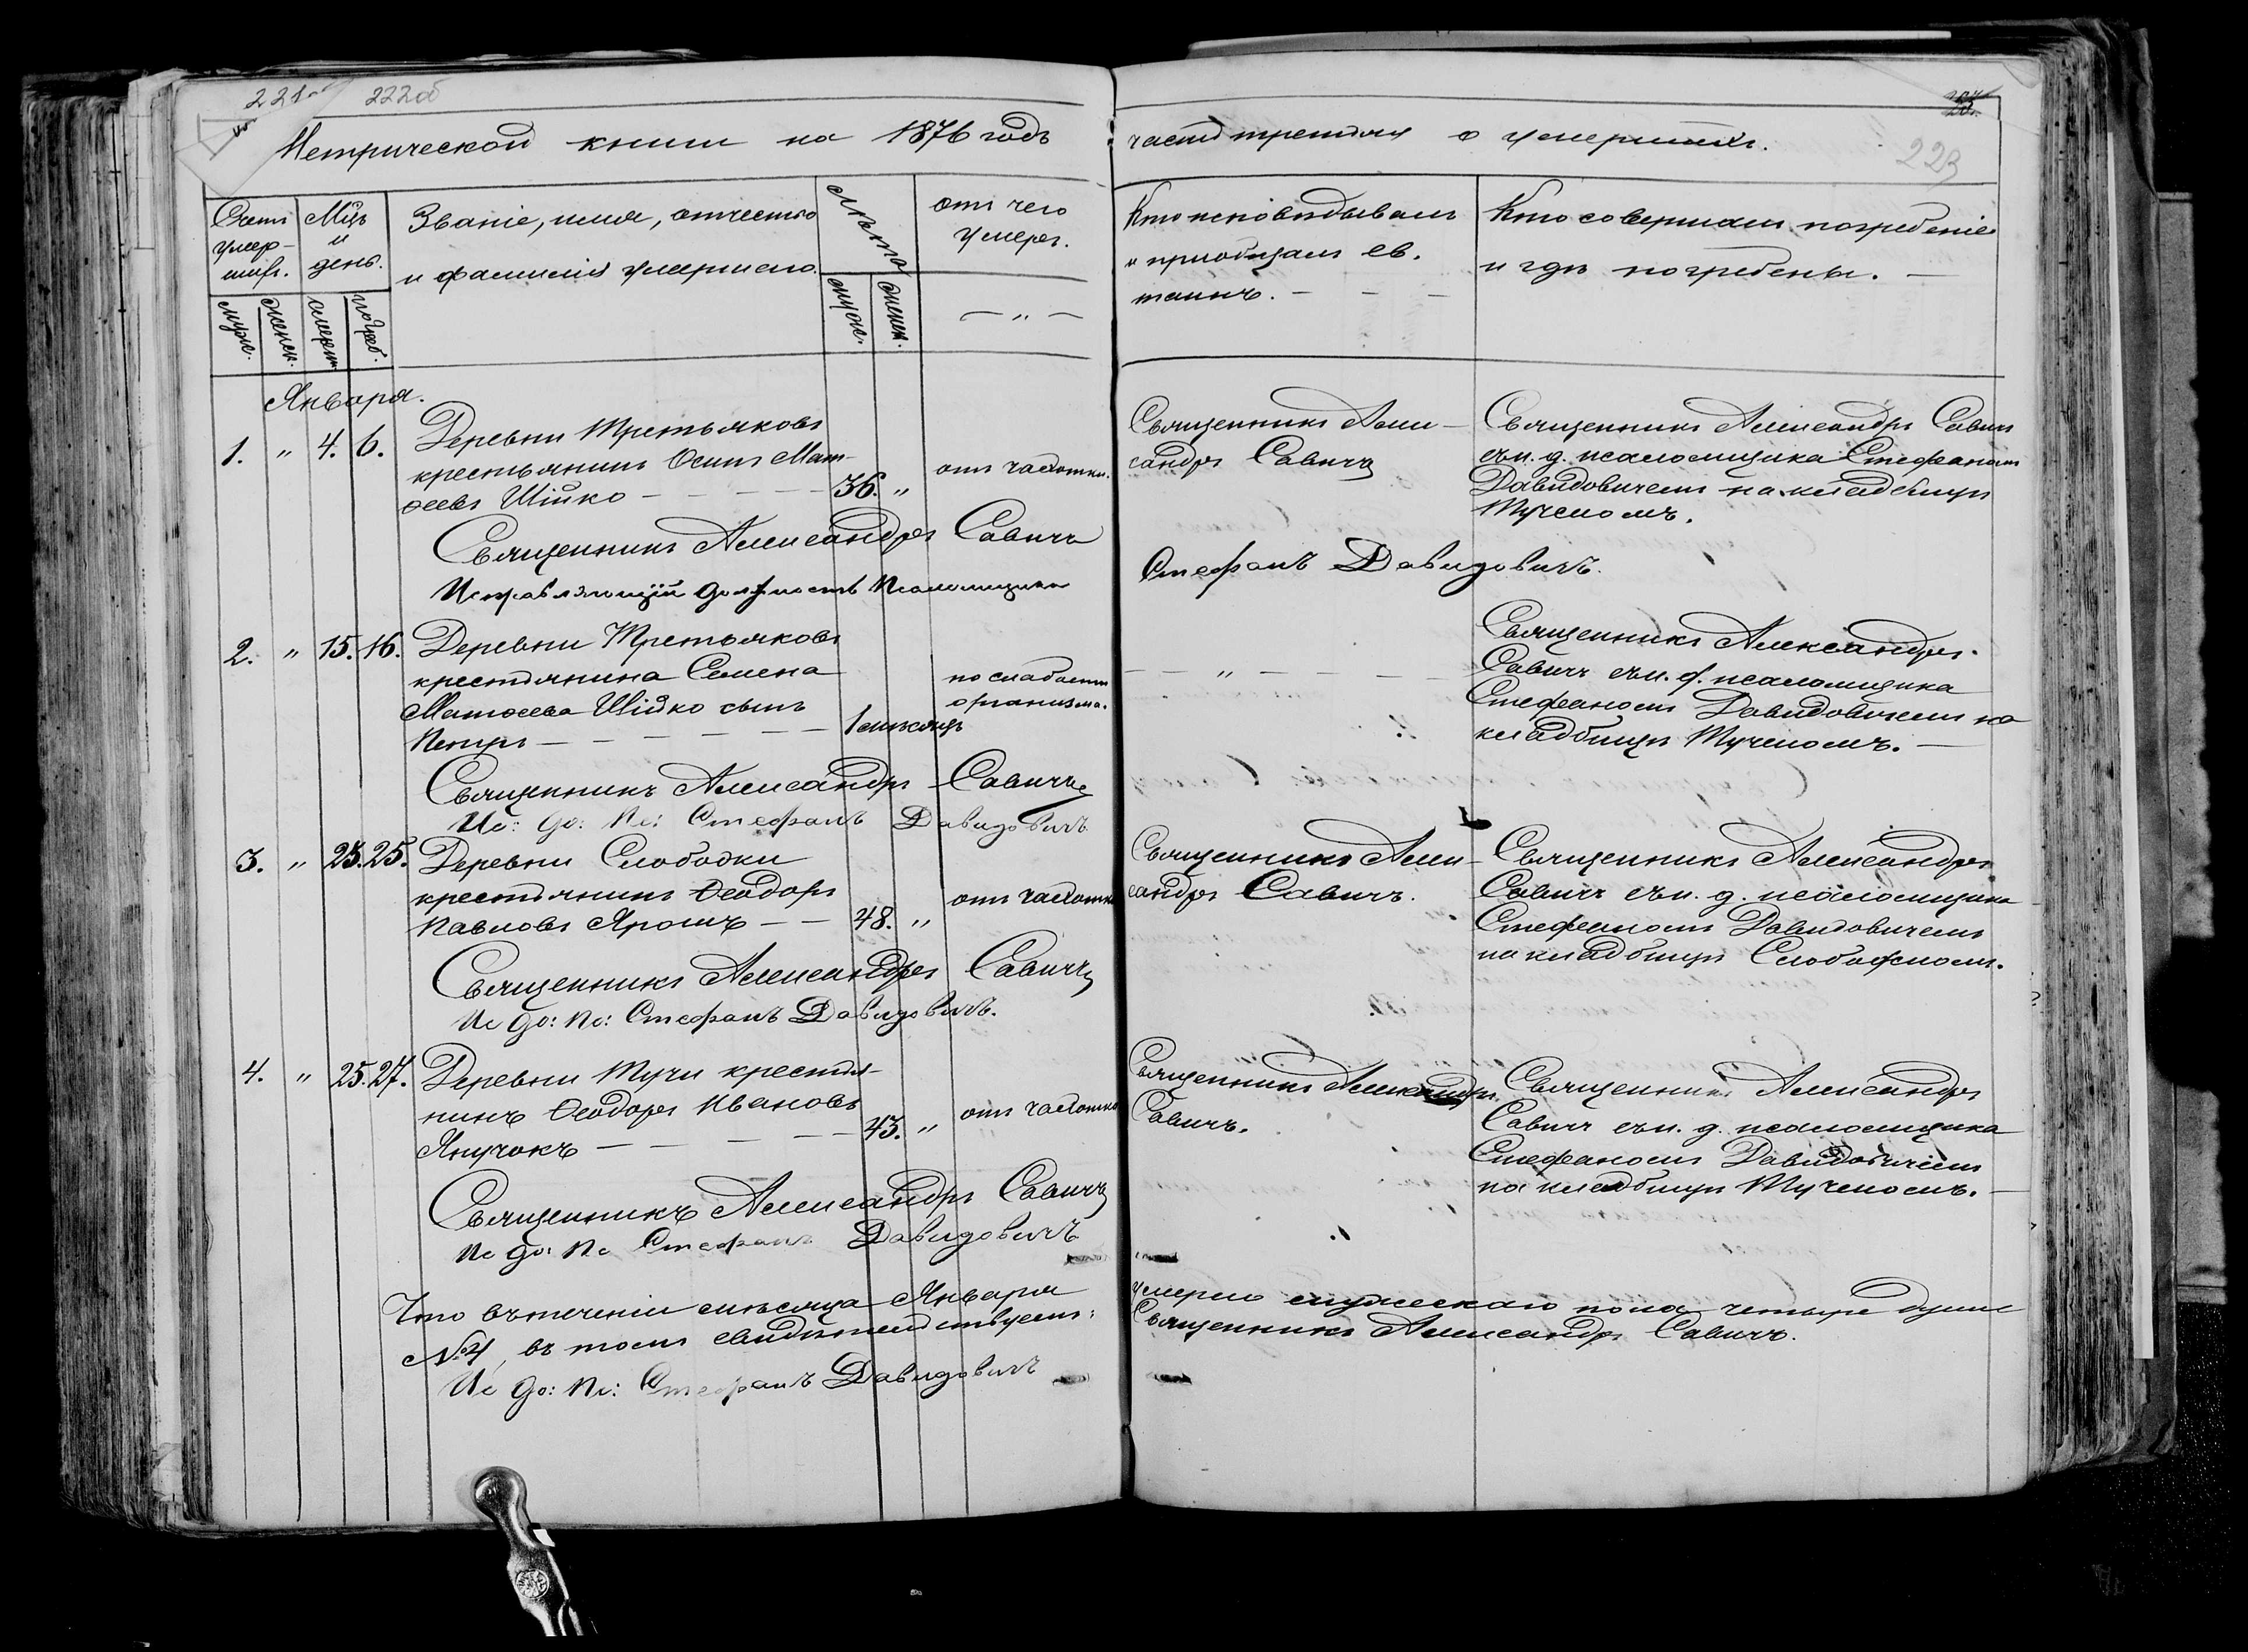 221 об 222 об
223
Метрической книги на 1876 годъ
части третьяя о умершихъ.
Счетъ умер-шихъ.
Мцъ и день.
Званіе, имя, отчество
и фамилія умершаго.
Лѣта
отъ чего
умеръ.
Кто исповѣдывалъ
и приобщалъ св.
таинъ. — — —
Кто совершалъ погребеніе
и гдѣ погребены. —
Муже.
Женск.
смерт.
погреб.
муже.
женск.
— „ —
Января.
1. „ 4. 6. Деревни Третьяковъ
крестьянинъ Осипъ Мат-
ѳеевъ Шійко — — — — — 36. „ отъ чахотки.
Священникъ Алек-
сандръ Савичъ
Священникъ Александръ Савичъ
съ и. д. псаломщика Стефаномъ
Давидовичемъ на кладбищѣ
Тучномъ.
Священникъ Александръ Савичъ
Исправляющій должность Псаломщика
Стефанъ Давидовичъ.
2. „ 15. 16. Деревни Третьяковъ
крестьянина Семена
Матѳеева Шійко сынъ
Петръ — — — — — — 1 мѣсяцъ
по слабости
организма.
— — „ — — — —
Священникъ Александръ
Савичъ съ и. д. псаломщика
Стефаномъ Давидовичемъ на
кладбищѣ Тученомъ. —
Священникъ Александръ Савичъ
Ис: до: Пс: Стефанъ Давидовичъ
3. „ 23. 25. Деревни Слободки
крестьянинъ Ѳеодоръ
Павловъ Ярошъ — — 48. „ отъ чахотки
Священникъ Алек-
сандръ Савичъ.
Священникъ Александръ
Савичъ съ и. д. псаломщика
Стефаномъ Давидовичемъ
на кладбищѣ Слободскомъ.
Священникъ Александръ Савичъ
Ис до: Пс: Стефанъ Давидовичъ.
4. „ 25. 27. Деревни Тучи крестья-
нинъ Ѳеодоръ Ивановъ
Янучокъ — — — — — 43. „ отъ чахотки
Священникъ Александръ
Савичъ.
Священникъ Александръ
Савичъ съ и. д. псаломщика
Стефаномъ Давидовичемъ
на кладбищѣ Тученомъ. —
Священникъ Александръ Савичъ
Ис до: Пс Стефанъ Давидовичъ
Что въ теченіи мѣсяца Января
умерло мужескаго пола четыре души
№ 4, въ томъ свидѣтельствуемъ:
Священникъ Александръ Савичъ.
Ис до: Пс: Стефанъ Давидовичъ